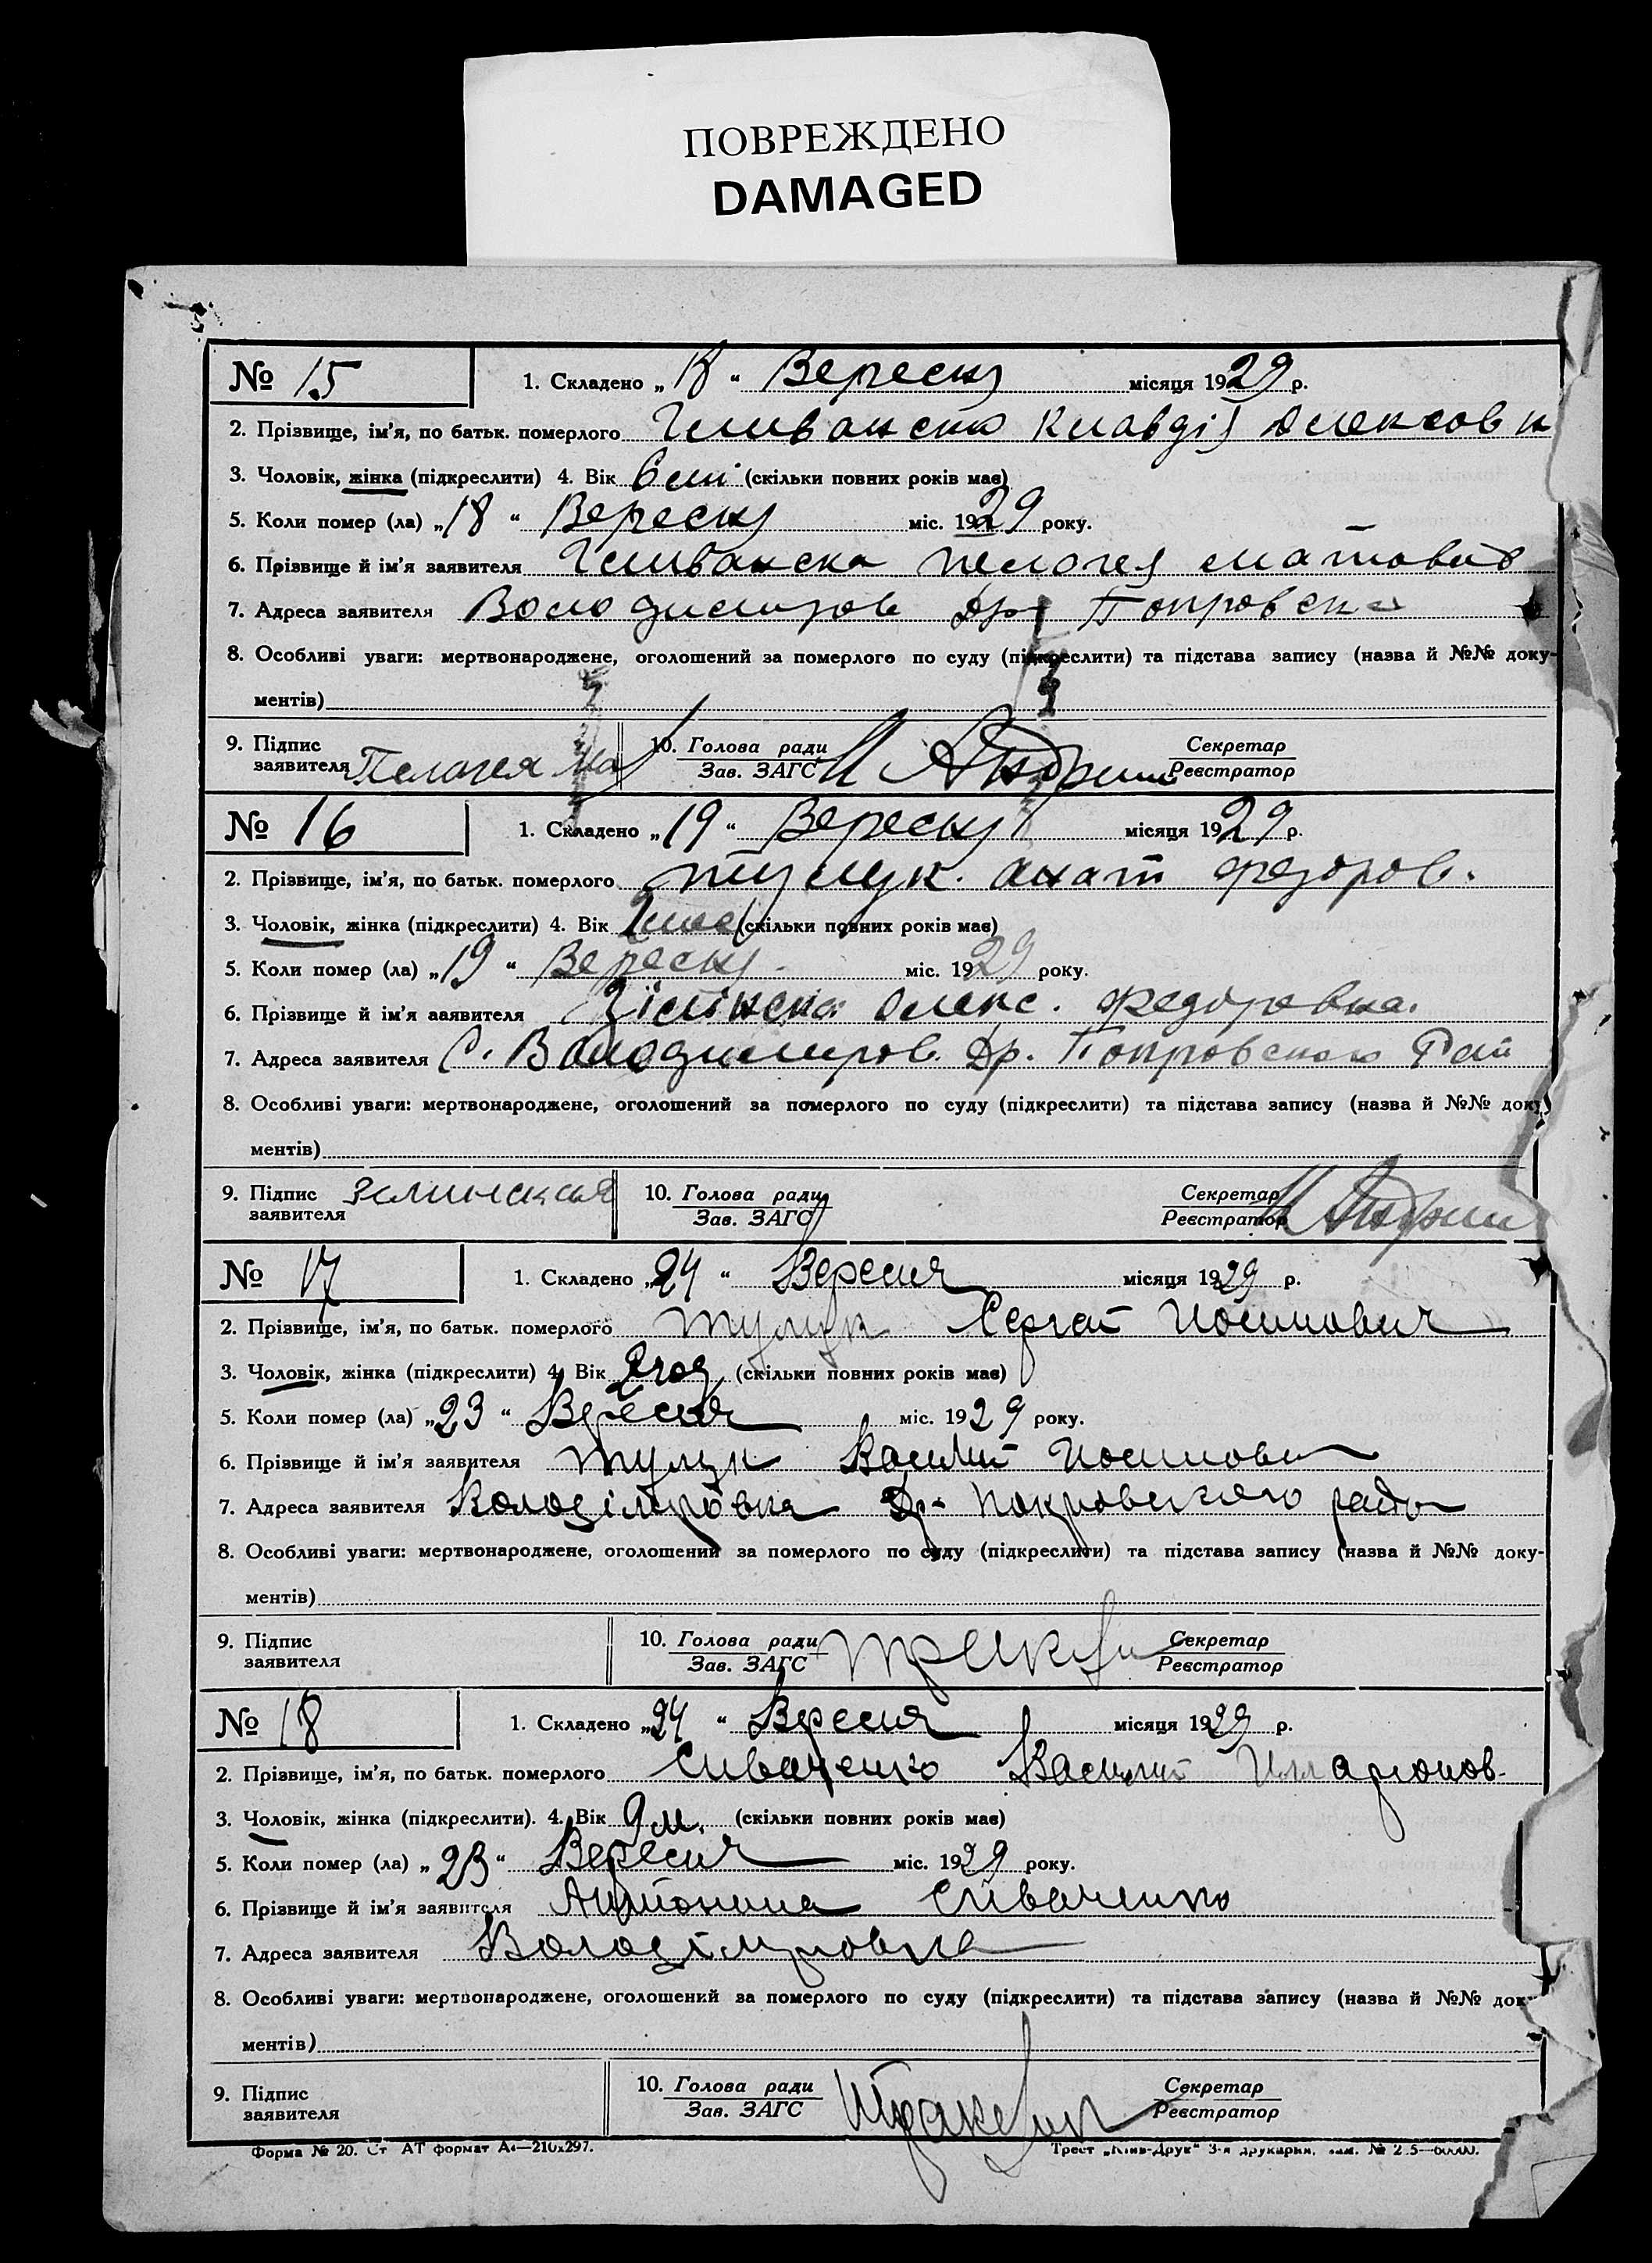 ПОВРЕЖДЕНО
DAMAGED
№ 15 1. Складено „18“ Вересня місяця 1929 р.
2. Прізвище, ім’я, по батьк. померлого Клавдія
3. Чоловік, жінка (підкреслити) 4. Вік (скільки повних років має)
5. Коли помер (ла) „18“ Вересня міс. 1929 року.
6. Прізвище й ім’я заявителя
7. Адреса заявителя Володимиров Др
8. Особливі уваги: мертвонароджене, оголошений за померлого по суду (підкреслити) та підстава запису (назва й №№ доку-
ментів)
9. Підпис 10. Голова ради Секретар
заявителя Пелагея Зав. ЗАГС Реєстратор
№ 16 1. Складено „19“ Вересня місяця 1929 р.
2. Прізвище, ім’я, по батьк. померлого федоров.
3. Чоловік, жінка (підкреслити) 4. Вік (скільки повних років має)
5. Коли помер (ла) „19“ Вересня міс. 1929 року.
6. Прізвище й ім’я заявителя Олекс. Федоровна.
7. Адреса заявителя С. Володимиров. Др.
8. Особливі уваги: мертвонароджене, оголошений за померлого по суду (підкреслити) та підстава запису (назва й №№ доку
ментів)
9. Підпис 10. Голова ради Секретар
заявителя Зав. ЗАГС Реєстратор
№ 17 1. Складено „24“ Вересня місяця 1929 р.
2. Прізвище, ім’я, по батьк. померлого Сергей Иосипович
3. Чоловік, жінка (підкреслити) 4. Вік 2 год (скільки повних років має)
5. Коли помер (ла) „23“ Вересня міс. 1929 року.
6. Прізвище й ім’я заявителя Василий
7. Адреса заявителя Володімровка Др- Покровского
8. Особливі уваги: мертвонароджене, оголошений за померлого по суду (підкреслити) та підстава запису (назва й №№ доку-
ментів)
9. Підпис 10. Голова ради Секретар
заявителя Зав. ЗАГС Реєстратор
№ 18 1. Складено „24“ Вересня місяця 1929 р.
2. Прізвище, ім’я, по батьк. померлого Сиваченко Василий Илларионов-
3. Чоловік, жінка (підкреслити). 4. Вік 9 м. (скільки повних років має)
5. Коли помер (ла) „23“ Вересня міс. 1929 року.
6. Прізвище й ім’я заявителя Антонина Сиваченко
7. Адреса заявителя Володімровка
8. Особливі уваги: мертвонароджене, оголошений за померлого по суду (підкреслити) та підстава запису (назва й №№ доку
ментів)
9. Підпис 10. Голова ради Секретар
заявителя Зав. ЗАГС Реєстратор
Форма № 20. Ст АТ формат А4—210х297. Трест „Київ-Друк“ 3-я друкарня,